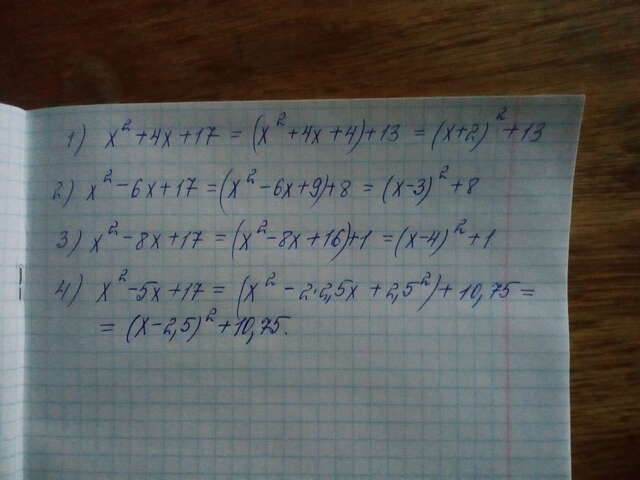 1) x² + 4x + 17 = (x² + 4x + 4) + 13 = (x+2)² + 13
2) x² - 6x + 17 = (x² - 6x + 9) + 8 = (x-3)² + 8
3) x² - 8x + 17 = (x² - 8x + 16) + 1 = (x-4)² + 1
4) x² - 5x + 17 = (x² - 2·2,5x + 2,5²) + 10,75 =
= (x - 2,5)² + 10,75.